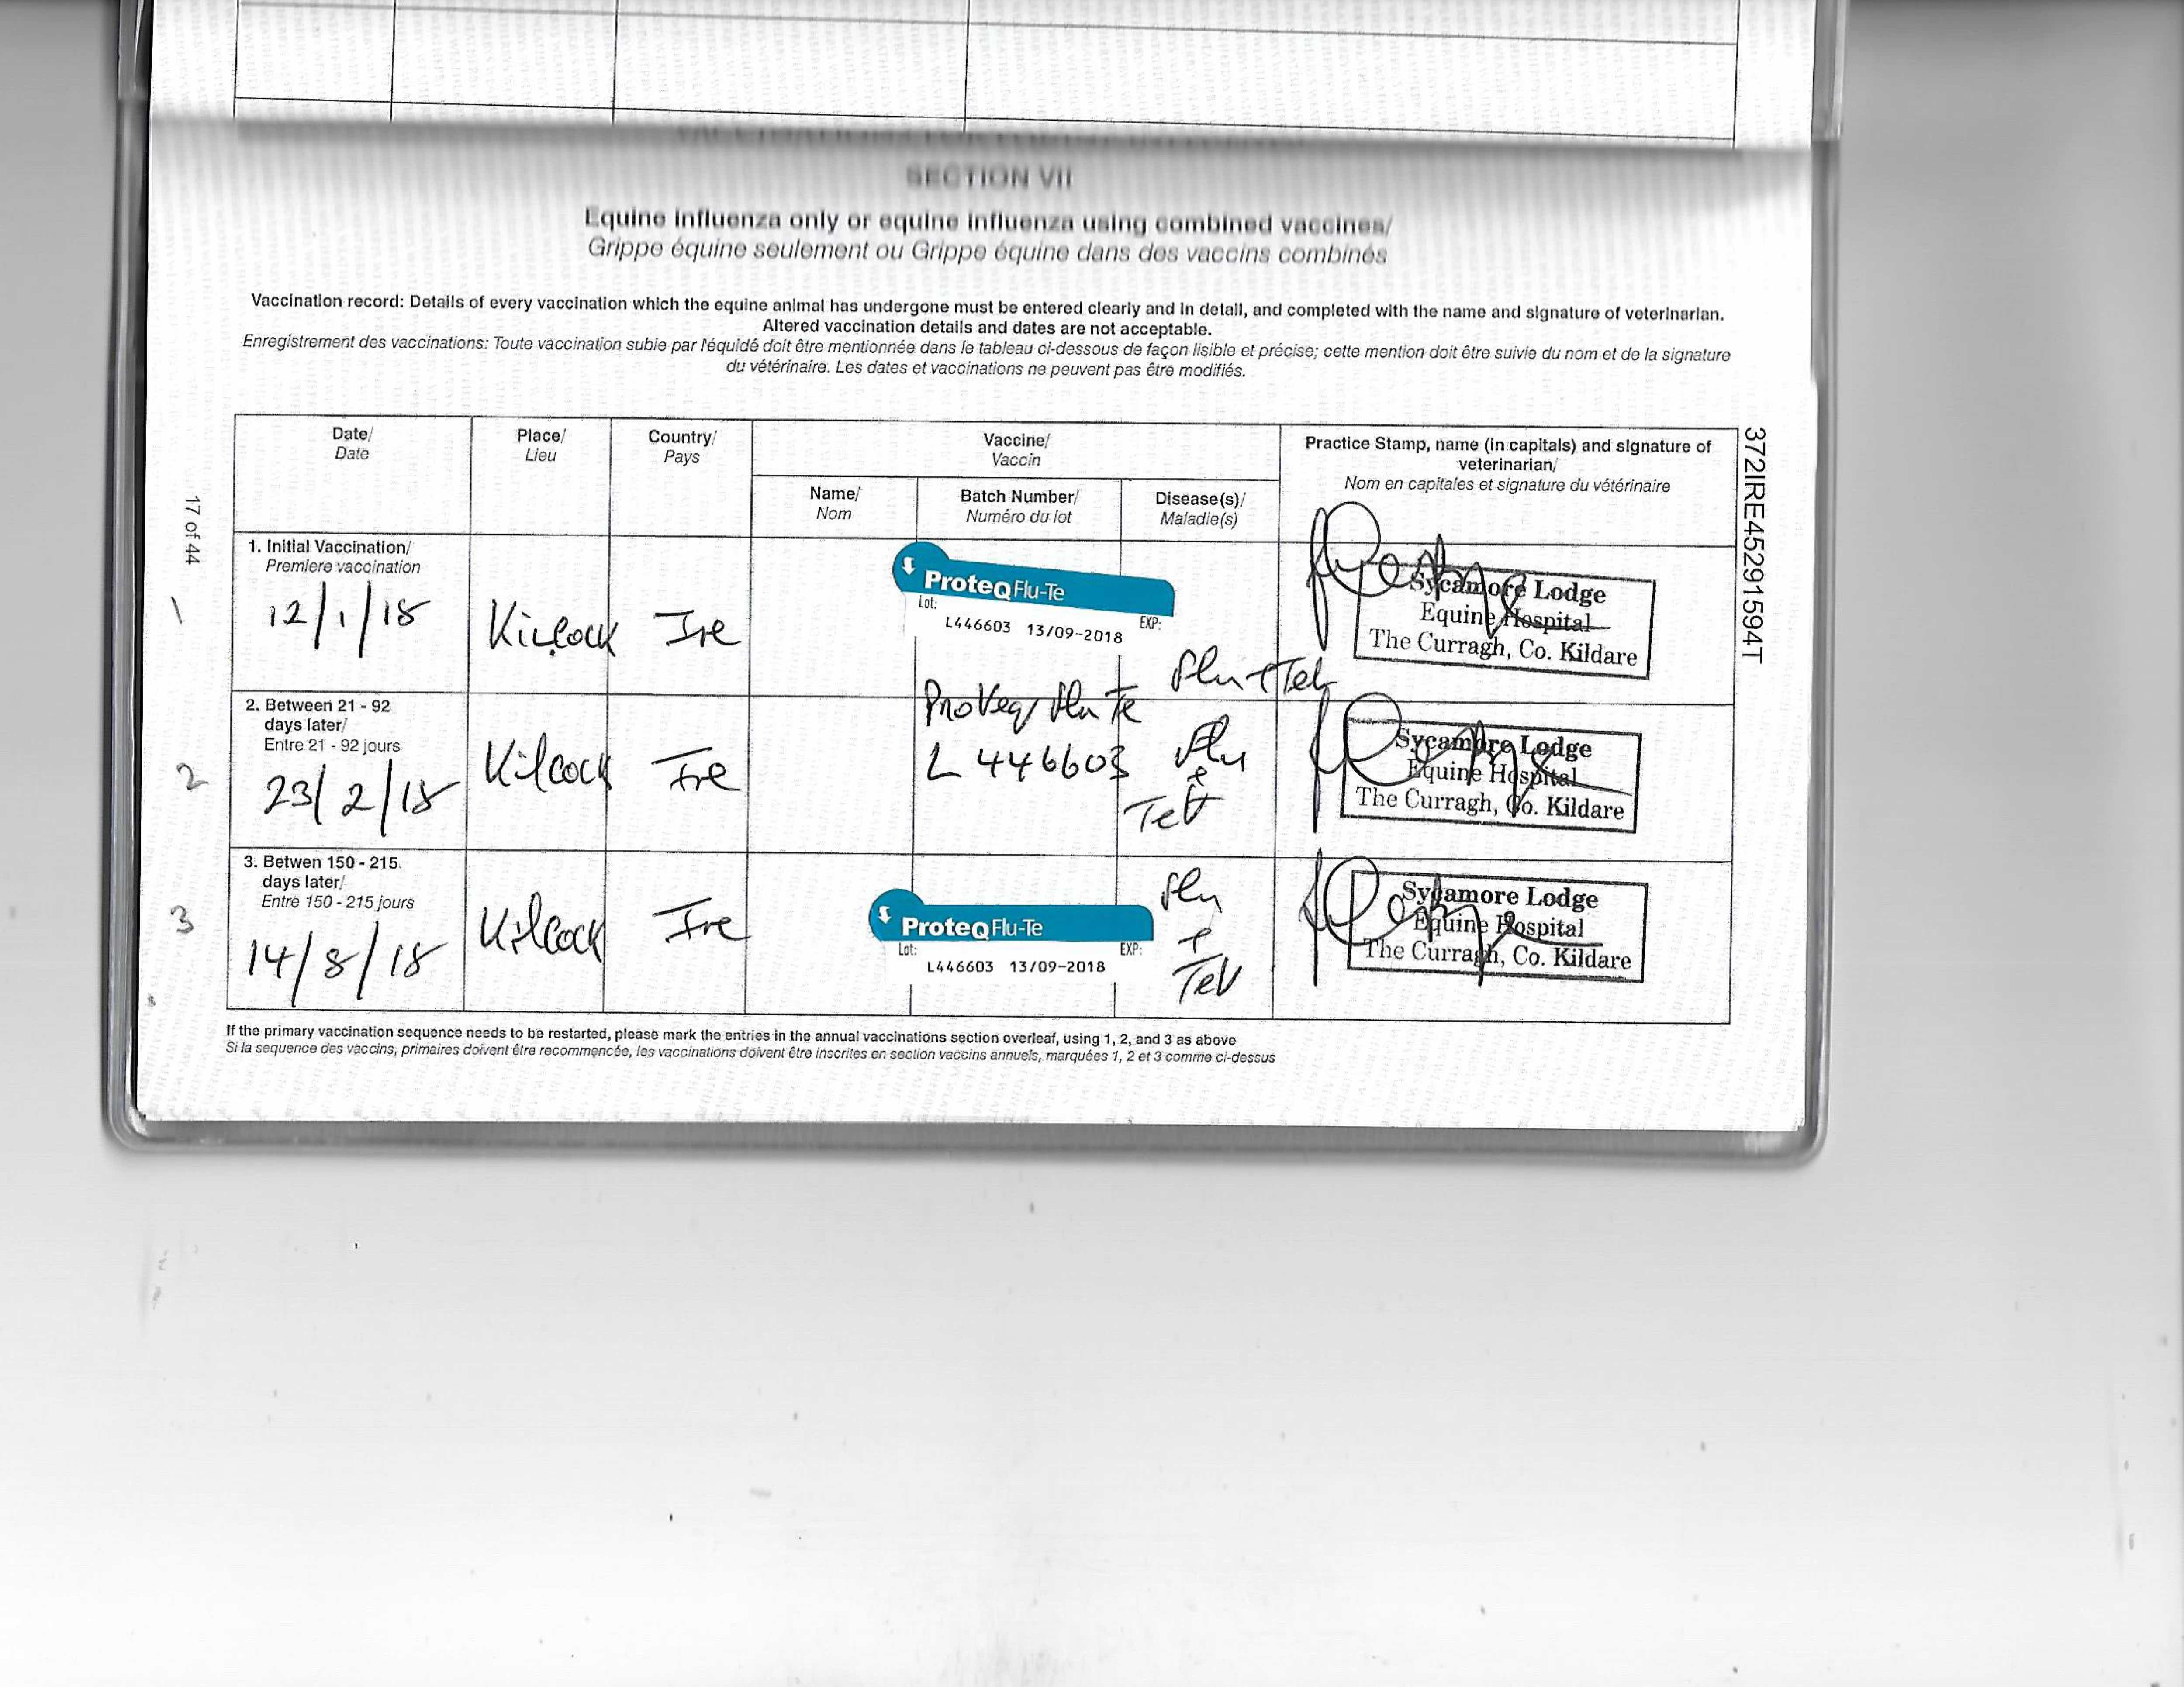 SECTION VII
Equine influenza only or equine influenza using combined vaccines/
Grippe équine seulement ou Grippe équine dans des vaccins combinés
Vaccination record: Details of every vaccination which the equine animal has undergone must be entered clearly and in detail, and completed with the name and signature of veterinarian.
Altered vaccination details and dates are not acceptable.
Enregistrement des vaccinations: Toute vaccination subie par l'équidé doit être mentionnée dans le tableau ci-dessous de façon lisible et précise; cette mention doit être suivie du nom et de la signature
du vétérinaire. Les dates et vaccinations ne peuvent pas être modifiés.
Date/
Date
Place/
Lieu
Country/
Pays
Vaccine/
Vaccin
Practice Stamp, name (in capitals) and signature of
veterinarian/
Nom en capitales et signature du vétérinaire
Name/
Nom
Batch Number/
Numéro du lot
Disease(s)/
Maladie(s)
1. Initial Vaccination/
Premiere vaccination
1
12/1/18
Kilcock
Ire
ProteqFlu-Te
Lot:
EXP:
L446603 13/09-2018
Flu + Tet
Sycamore Lodge
Equine Hospital
The Curragh, Co. Kildare
2. Between 21 - 92
days later/
Entre 21 - 92 jours
2
23/2/18
Kilcock
Ire
Proteq Flu Te
L446603
Flu
+
Tet
Sycamore Lodge
Equine Hospital
The Curragh, Co. Kildare
3. Betwen 150 - 215
days later/
Entre 150 - 215 jours
3
14/8/18
Kilcock
Ire
ProteqFlu-Te
Lot:
EXP:
L446603 13/09-2018
Flu
+
Tet
Sycamore Lodge
Equine Hospital
The Curragh, Co. Kildare
If the primary vaccination sequence needs to be restarted, please mark the entries in the annual vaccinations section overleaf, using 1, 2, and 3 as above
Si la sequence des vaccins, primaires doivent être recommencée, les vaccinations doivent être inscrites en section vaccins annuels, marquées 1, 2 et 3 comme ci-dessus
17 of 44
372IRE45291594T